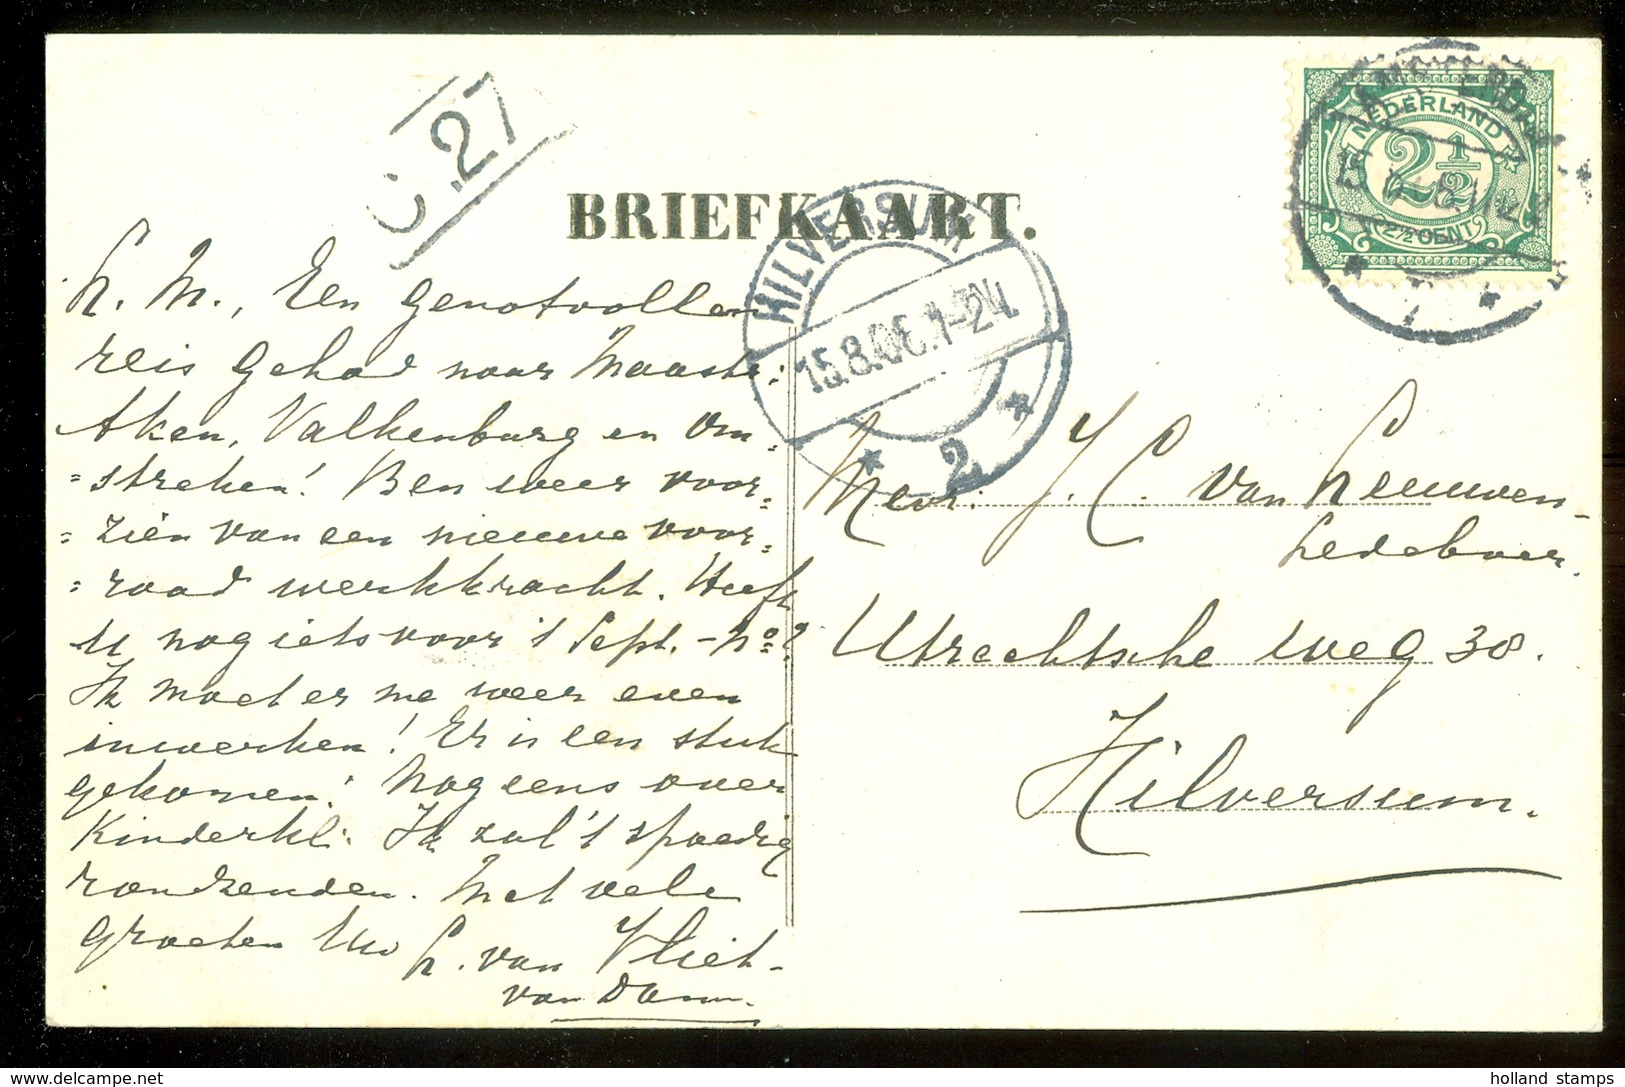 C.27
BRIEFKAART.
NEDERLAND
2½
2½ CENT
HILVERSUM
15.8.06.1-2N.
2
L. M., Een genotvollen
reis gehad naar Maastr:
Aken, Valkenburg en om=
=streken! Ben weer voor=
=zien van een nieuwe voor=
=raad werkkracht. Heeft
U nog iets voor 't Sept. - No?
Ik moet er me weer even
inwerken! Er is een stuk
gekomen! Nog eens over
Kinderkl: Ik zal 't spoedig
rondzenden. Met vele
groeten Uw L. van Vliet-
van Dam.
Mevr. J. C. van Leeuwen-
Ledeboer.
Utrechtsche weg 38.
Hilversum.
holland stamps